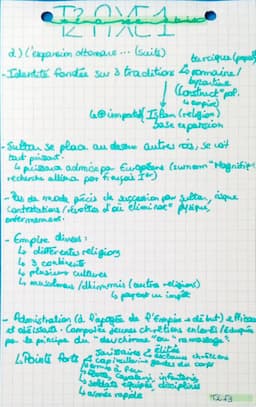 T2 AXE 1
2) L'expansion ottomane... (suite)
- Identité fondée sur 3 traditions
turcique (peuple)
romaine /
byzantine
(construct° pol.
empire)
↳ ⊕ important Islam (religion)
base expansion
- Sultan se place au dessus autres rois, se voit
tout puissant.
↳ puissance admise par Européens (surnom "Magnifique"
recherche alliance par François Ier)
- Pas de mode précis de succession par sultan, risque
contestations / révoltes d'où élimine° physique,
enfermement.
- Empire divers :
↳ différentes religions
↳ 3 continents
↳ plusieurs cultures
↳ musulmans / dhimmis (autres religions)
↳ payent un impôt
- Administration (à l'apogée de l'Empire → début) efficace
et obéissante. Composée jeunes chrétiens enlevés / éduqués
par le principe du "devchirme" ou "ramassage".
↳ Points forts
Janissaires élites
esclaves chrétiens
garde du corps
armes à feu
cavalerie, infanterie
↳ soldats équipés, disciplinés
↳ armée rapide